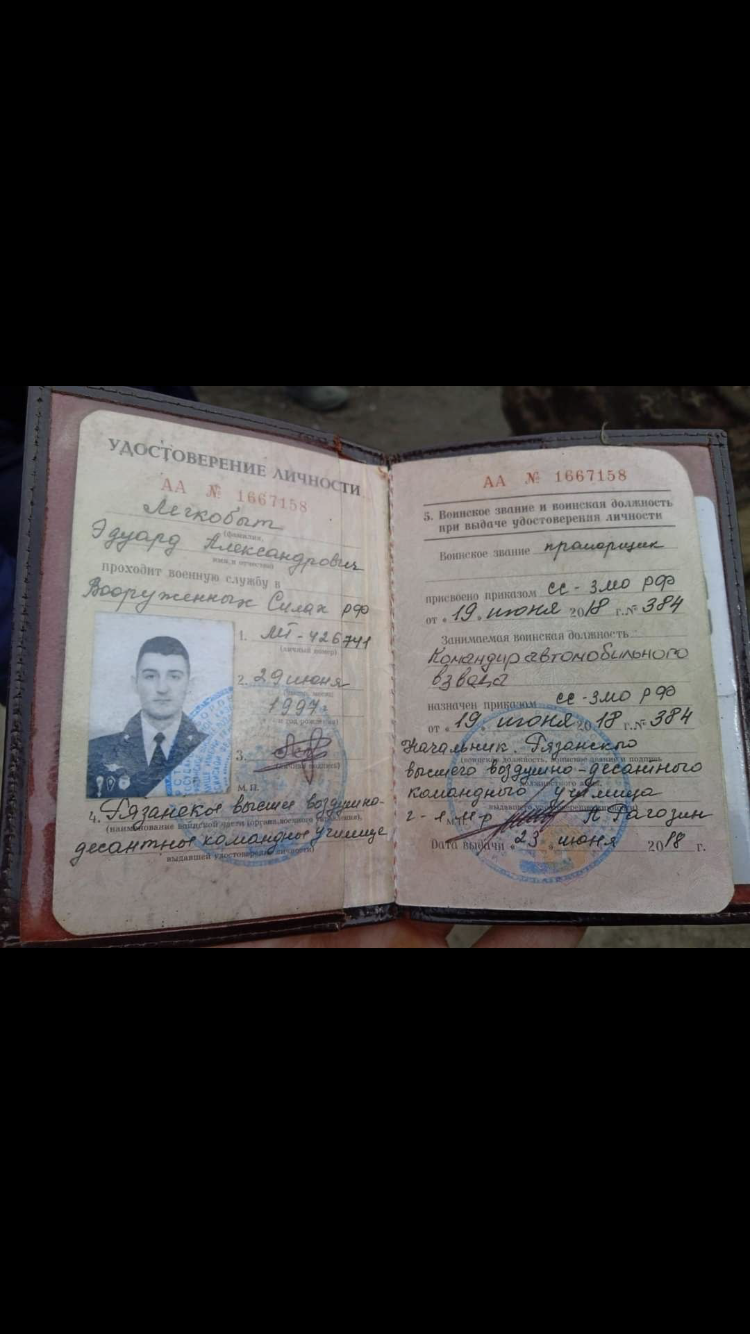 УДОСТОВЕРЕНИЕ ЛИЧНОСТИ
АА № 1667158
Легкобыт
(фамилия,
Эдуард Александрович
имя и отчество)
проходит военную службу в
Вооруженных Силах РФ
1. МТ-426741
(личный номер)
2. 29 июня
1997
3.
(личная подпись)
М.П.
4. Рязанское высшее воздушно-
десантное командное училище
выдавшей удостоверение личности)
АА № 1667158
5. Воинское звание и воинская должность
при выдаче удостоверения личности
Воинское звание прапорщик
присвоено приказом сс-ЗМО РФ
от « 19 » июня 2018 г. № 384
Занимаемая воинская должность
Командир автомобильного
взвода
назначен приказом сс-ЗМО РФ
от « 19 » июня 2018 г. № 384
Начальник Рязанского
высшего воздушно-десантного
командного училища
г-л.м-р А Рагозин
Дата выдачи « 23 » июня 2018 г.